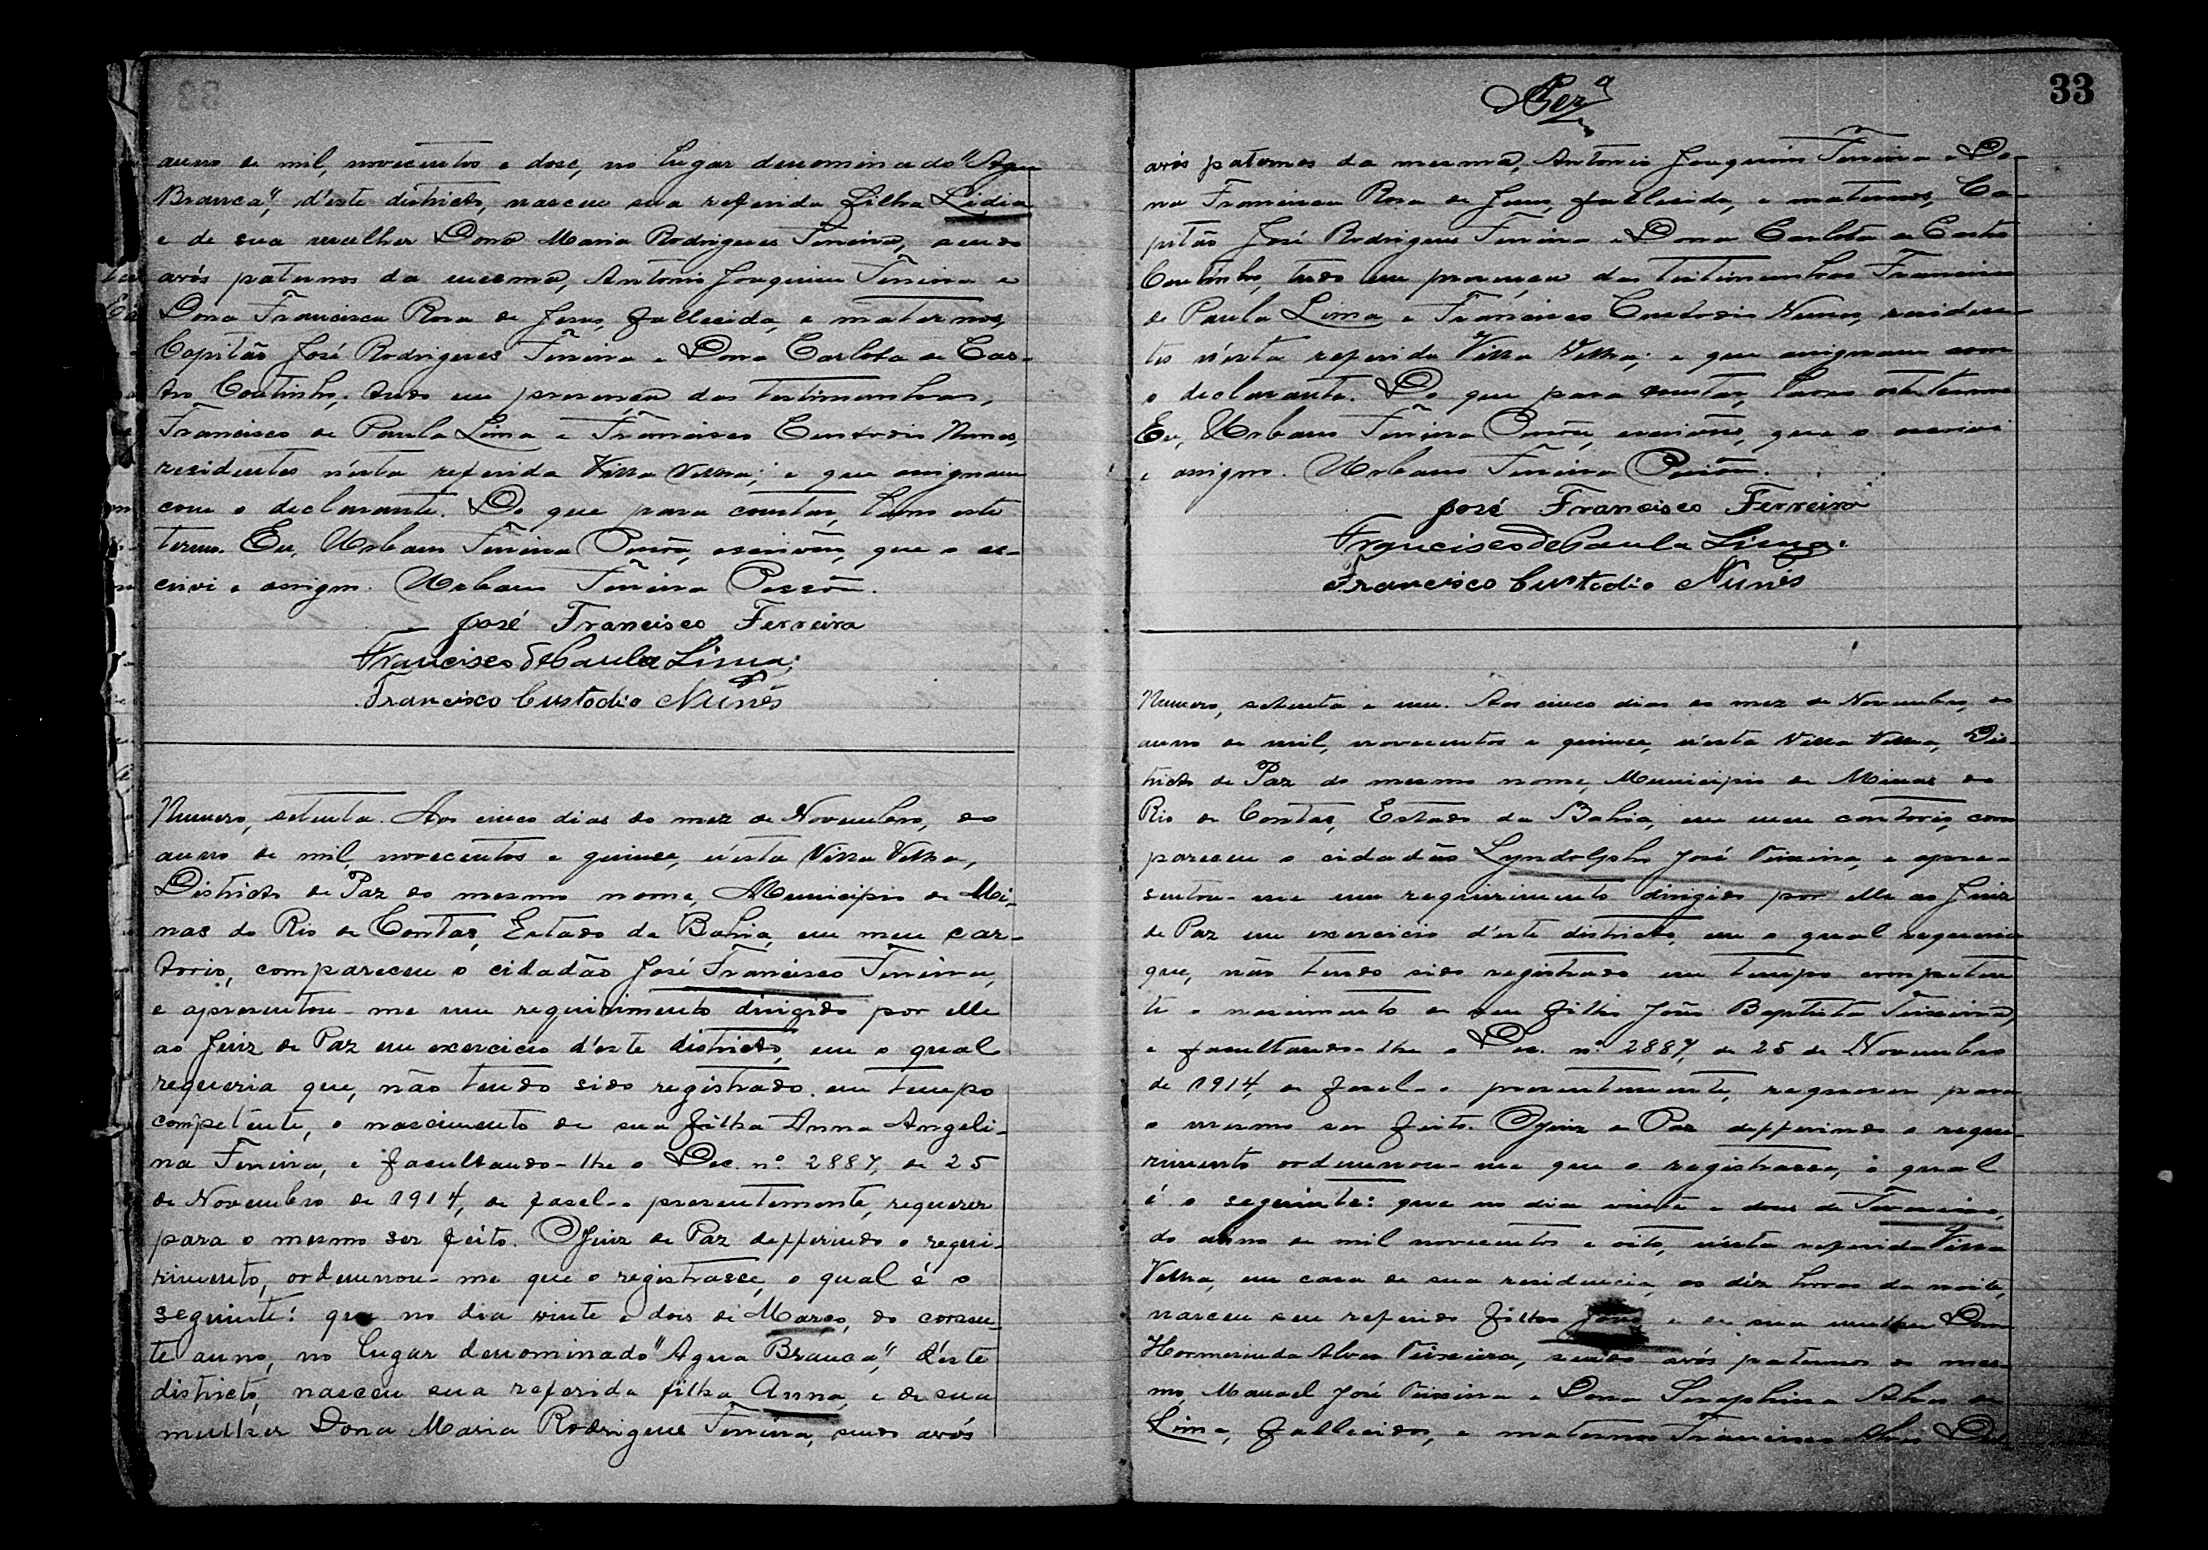 anno de mil, novecentos e dose, no lugar denominado "Agua
Branca", d'este districto, nasceu sua referida filha Lidia
e de sua mulher Dona Maria Rodrigues Ferreira, sendo
avós paternos da mesma, Antonio Joaquim Ferreira e
Dona Francisca Rosa de Jesus, fallecida, e maternos,
Capitão José Rodrigues Ferreira e Dona Carlota de Cas-
tro Coutinho, tudo em presença das testimunhas,
Francisco de Paula Lima e Francisco Custodio Nunes,
residentes n'esta referida Villa Velha; e que assignam
com o declarante. Do que para constar, lavro este
termo. Eu, Urbano Ferreira Pessôa, escrivão, que o es-
crivi e assigno. Urbano Ferreira Pessôa.
José Francisco Ferreira
Francisco de Paula Lima
Francisco Custodio Nunes
Numero, setenta. Aos cinco dias do mez de Novembro, do
anno de mil, novecentos e quinze, n'esta Villa Velha,
Districto de Paz do mesmo nome, Municipio de Mi-
nas do Rio de Contas, Estado da Bahia, em meu car-
torio, compareceu o cidadão José Francisco Ferreira,
e apresentou-me um requirimento dirigido por elle
ao Juiz de Paz em exercicio d'este districto, em o qual
requeria que, não tendo sido registrado em tempo
competente, o nascimento de sua filha Anna Angeli-
na Ferreira, e facultando-lhe o Dec. nº 2887, de 25
de Novembro de 1914, de fasel-o presentemente, requerer
para o mesmo ser feito. O Juiz de Paz defferindo o requi-
rimento, ordennou-me que o registrasse, o qual é o
seguinte: que no dia vinte e dois de Março, do corren-
te anno, no lugar denominado "Agua Branca", d'este
districto, nasceu sua referida filha Anna, e de sua
mulher Dona Maria Rodrigues Ferreira, sendo avós
33
avós paternos da mesma, Antonio Joaquim Ferreira e Do-
na Francisca Rosa de Jesus, fallecida, e maternos, Ca-
pitão José Rodrigues Ferreira e Dona Carlota de Castro
Coutinho, tudo em presença das testimunhas Francisco
de Paula Lima e Francisco Custodio Nunes, residen-
tes n'esta referida Villa Velha; e que assignam com
o declarante. Do que para constar, lavro este termo
Eu, Urbano Ferreira Pessôa, escrivão, que o escrivi
e assigno. Urbano Ferreira Pessôa.
José Francisco Ferreira
Francisco de Paula Lima
Francisco Custodio Nunes
Numero, setenta e um. Aos cinco dias do mez de Novembro, do
anno de mil, novecentos e quinze, n'esta Villa Velha, Dis-
tricto de Paz do mesmo nome, Municipio de Minas do
Rio de Contas, Estado da Bahia, em meu cartorio, com
pareceu o cidadão Lyndolpho José Teixeira, e apre-
sentou-me um requirimento dirigido por elle ao Juiz
de Paz em exercicio d'este districto, em o qual requeria
que, não tendo sido registrado em tempo competen
te o nascimento de seu filho João Baptista Teixeira,
e facultando-lhe o Dec. nº 2887, de 25 de Novembro
de 1914, de fasel-o presentemente, requerer para
o mesmo ser feito. O Juiz de Paz defferindo o reque-
rimento ordennou-me que o registrasse, o qual
é o seguinte: que no dia vinte e dous de Fevereiro,
do anno de mil novecentos e oito, n'esta referida Villa
Velha, em casa de sua residencia, as déz horas da noite,
nasceu seu referido filho João, e de sua mulher Dona
Hormesinda Alves Teixeira, sendo avós paternos do mes-
mo, Manoel José Teixeira e Dona Seraphina Alves de
Lima, fallecidos, e maternos Francisco Alves